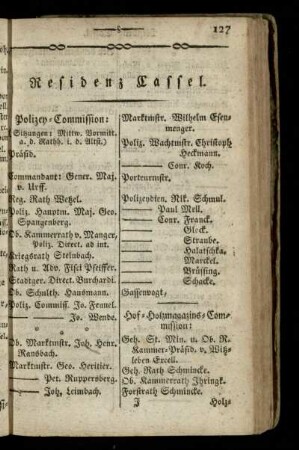 127
Residenz Cassel.
Polizey-Commission:
Sitzungen: Mittw. Vormitt.
a. d. Rathh. i. d. Altst.)
Präsid.
Commandant: Gener. Maj.
v. Urff.
Reg. Rath Wetzel.
Poliz. Hauptm. Maj. Geo.
Spangenberg.
Ob. Kammerrath v. Manger,
Poliz. Direct. ad int.
Kriegsrath Steinbach.
Rath u. Adv. Fisci Pfeiffer.
Stadtger. Direct. Burchardi.
Ob. Schulth. Hausmann.
Poliz. Commiss. Jo. Frenel.
Jo. Wende.
* * *
Ob. Marktmstr. Joh. Henr.
Ransbach.
Marktmstr. Geo. Heritier.
— Pet. Ruppersberg.
— Joh. Leimbach.
Marktmstr. Wilhelm Esen-
menger.
Poliz. Wachtmstr. Christoph
Heckmann.
— Conr. Koch.
Porteurmstr.
Polizeydien. Nik. Schmul.
— Paul Mell.
— Conr. Franck.
— Glock.
— Straube.
— Halatschka.
— Marckel.
— Brüssing.
— Schacke.
Gassenvogt—
Hof-Holzmagazins-Com-
mission:
Geh. St. Min. u. Ob. R.
Kammer-Präsid. v. Witz-
leben Excell.
Geh. Rath Schmincke.
Ob. Kammerrath Ihringk.
Forstrath Schmincke.
J Holz-